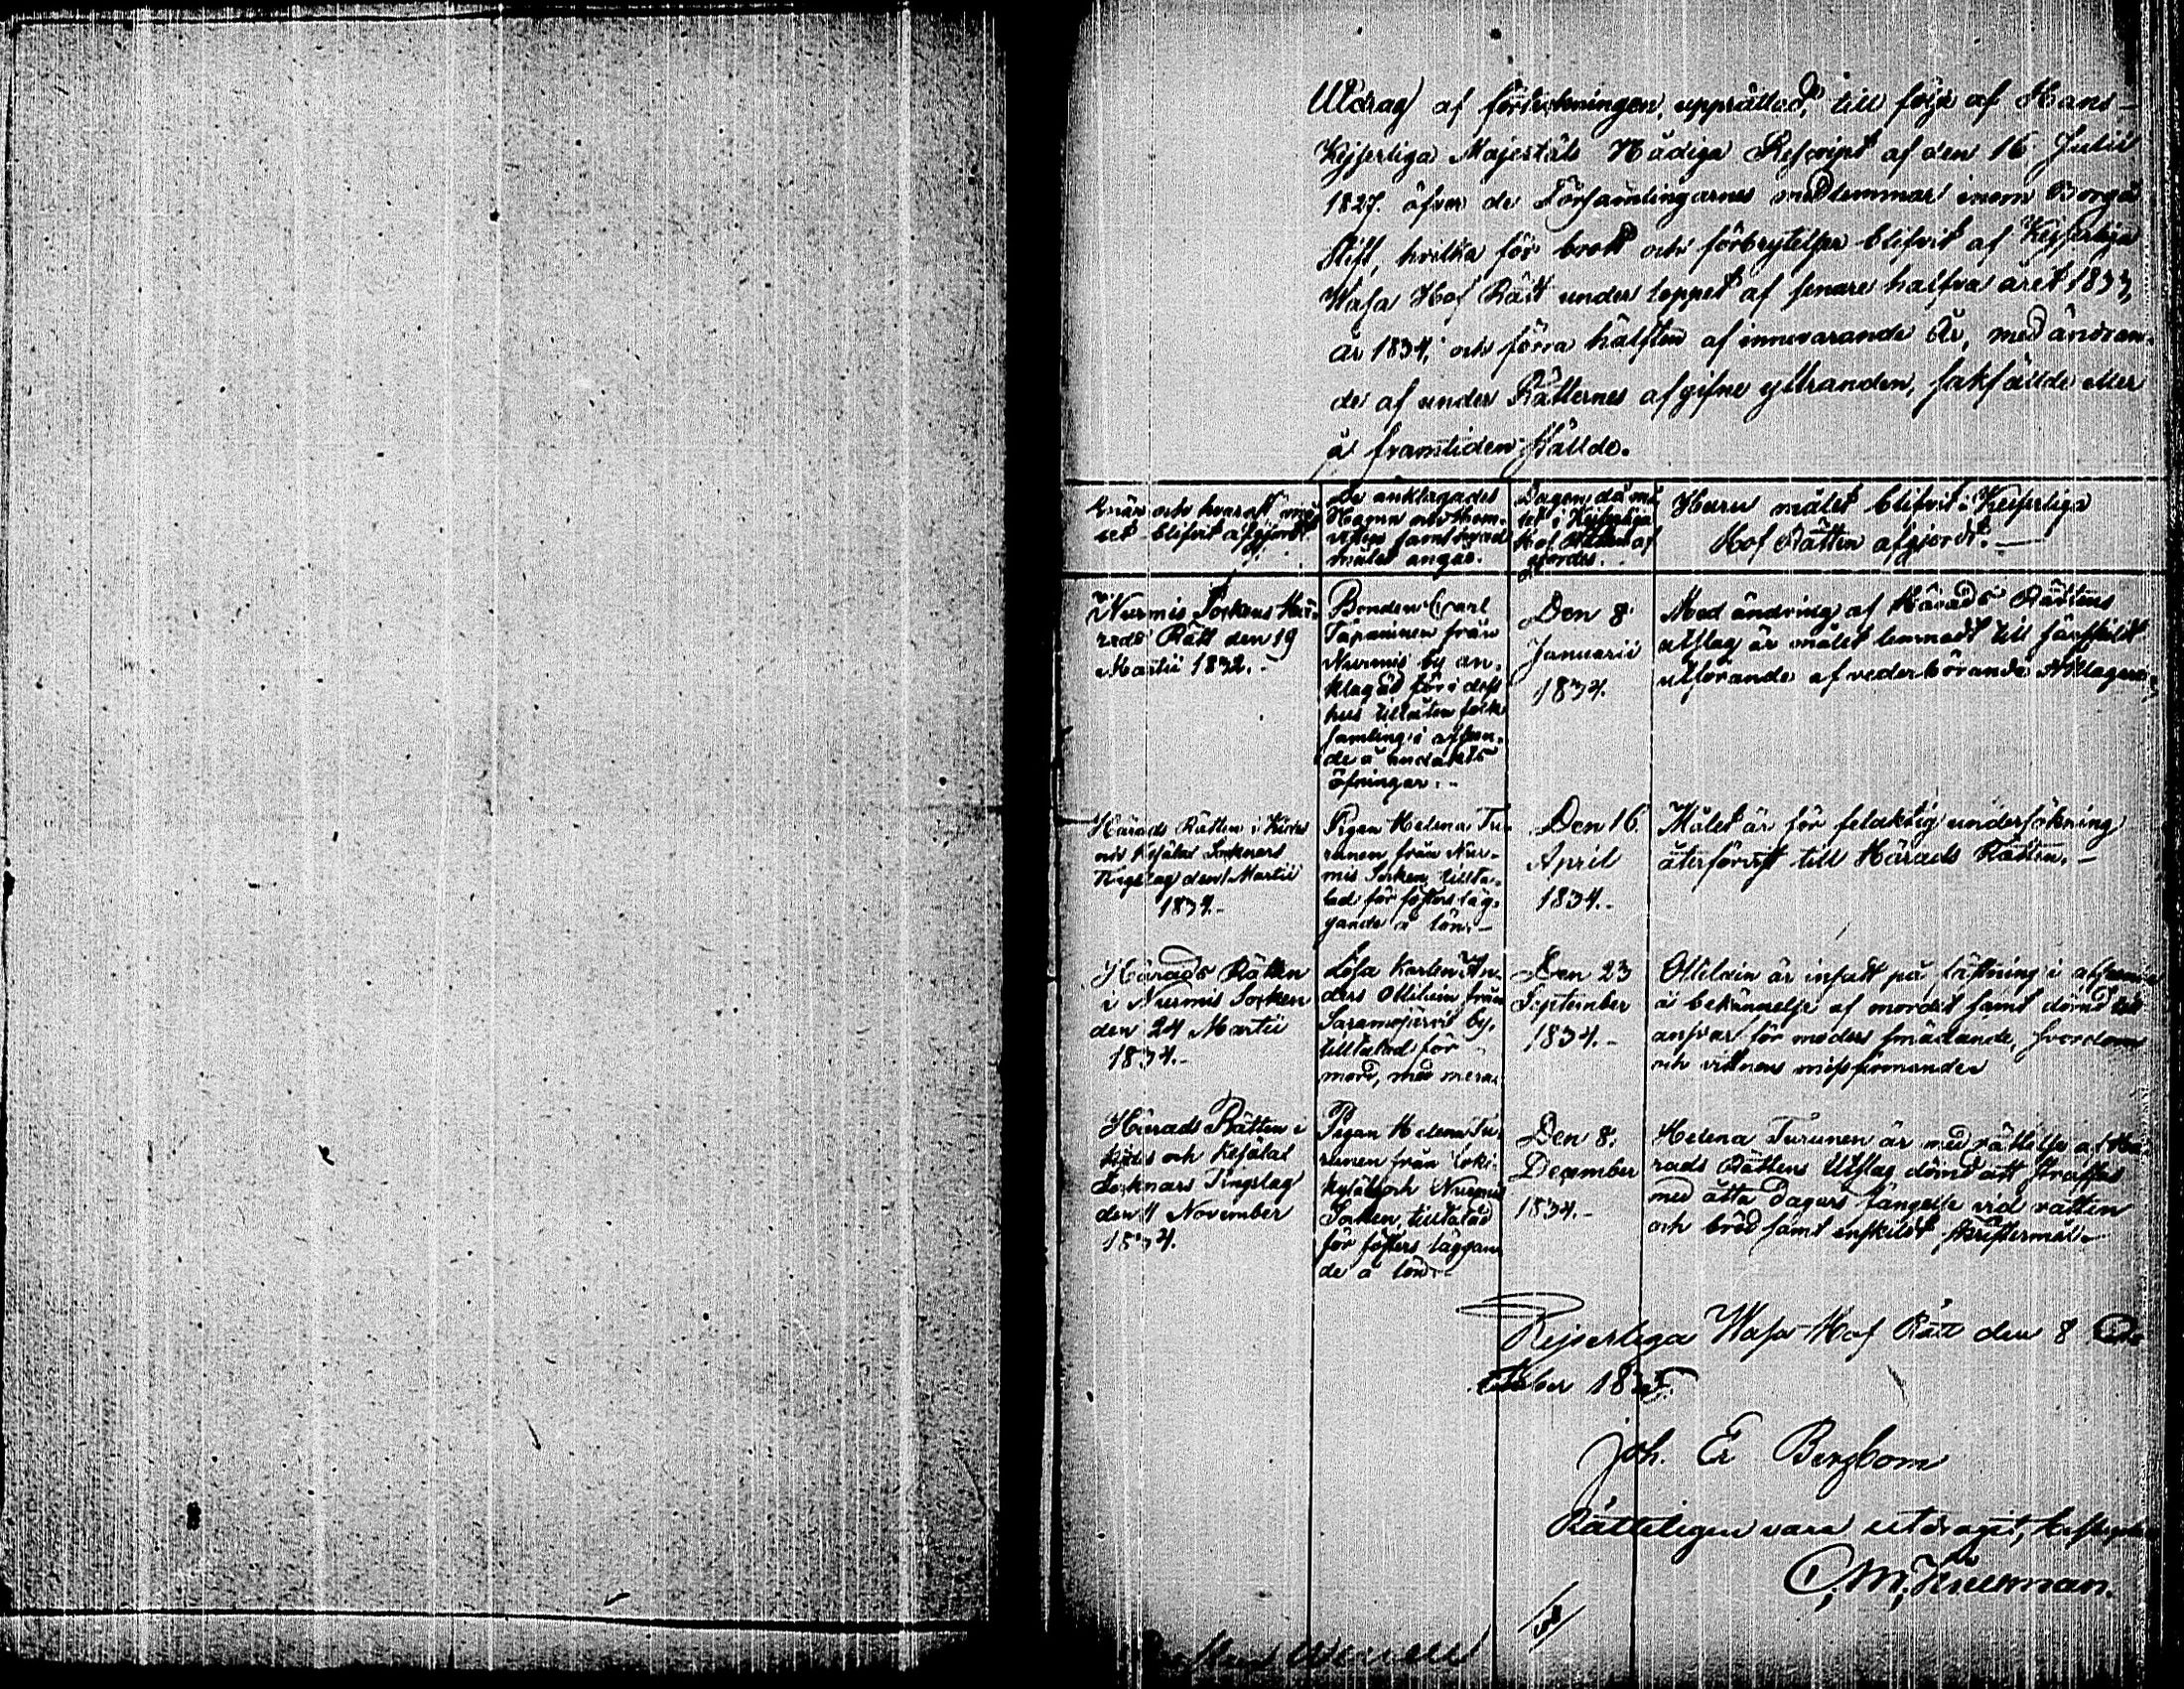 Utdrag af förteckningen, upprättad, till följe af Hans
Kejserliga Majestäts Nådiga Rescript af den 16 Julii
1827. öfver de Församlingarnes medlemmar inom Borgå
Stift, hvilka för brott och förbrytelser blifvit af Kejserliga
Wasa Hof Rätt under loppet af senare halfva året 1833,
år 1834, och förra hälften af innevarande År, med ändran-
de af under Rätternes afgifne yttranden, sakfällde eller
å framtiden ställde.
När och hvarest må-
let blifvit afgjordt
De anklagades
Namn och hem-
vister samt hvad
målet angår.
Dagen, då må-
let i Kejserliga
Hof Rätten af
gjordes.
Huru målet blifvit i Kejserliga
Hof Rätten afgjordt.
i Nurmis Sockens Hä-
rads Rätt den 19
Martii 1832.-
Bonden Carl
Tapaninen från
Nurmis by an-
klagad för i dess
hus tillåten folk
samling i afseen-
de å andakts
öfningar.-
Den 8
Januarii
1834.
Med ändring af Härads Rättens
utslag är målet lemnadt till särskildt
utförande af vederbörande Åklagare.
Härads Rätten i Kides
och Kesälax Socknars
Tingslag den 1 Martii
1834.-
Pigan Helena Tu-
runen från Nur-
mis Socken, tillta-
lad för fosters läg-
gande å lön.-
Den 16
April
1834.-
Målet är för felaktig undersökning
återförvist till Härads Rätten.-
Härads Rätten
i Nurmis Socken
den 24 Martii
1834.-
Lösa Karlen An-
ders Ottilain från
Saramojärvi by,
tilltalad för
mord, med mera.
Den 23
September
1834.-
Ottilain är insatt på fästning i afseende
å bekännelse af mordet samt dömd till
ansvar för moders smädande, hordom
och vittnens missfirmande
Härads Rätten i
Kides och Kesälax
Socknars Tingslag
den 11 November
1834.
Pigan Helena Tu-
runen från Loki-
kylä och Nurmis
Socken, tilltalad
för fosters läggan
de å lön.-
Den 8
December
1834.-
Helena Turunen är med rättelse af Hä-
rads Rättens Utslag dömd att straffas
med åtta dagars fängelse vid vatten
och bröd samt enskildt skriftermål.-
Kejserliga Wasa Hof Rätt den 8
1835.
Joh. Er Bergbom
Rätteligen vara utdraget, 
C. M.